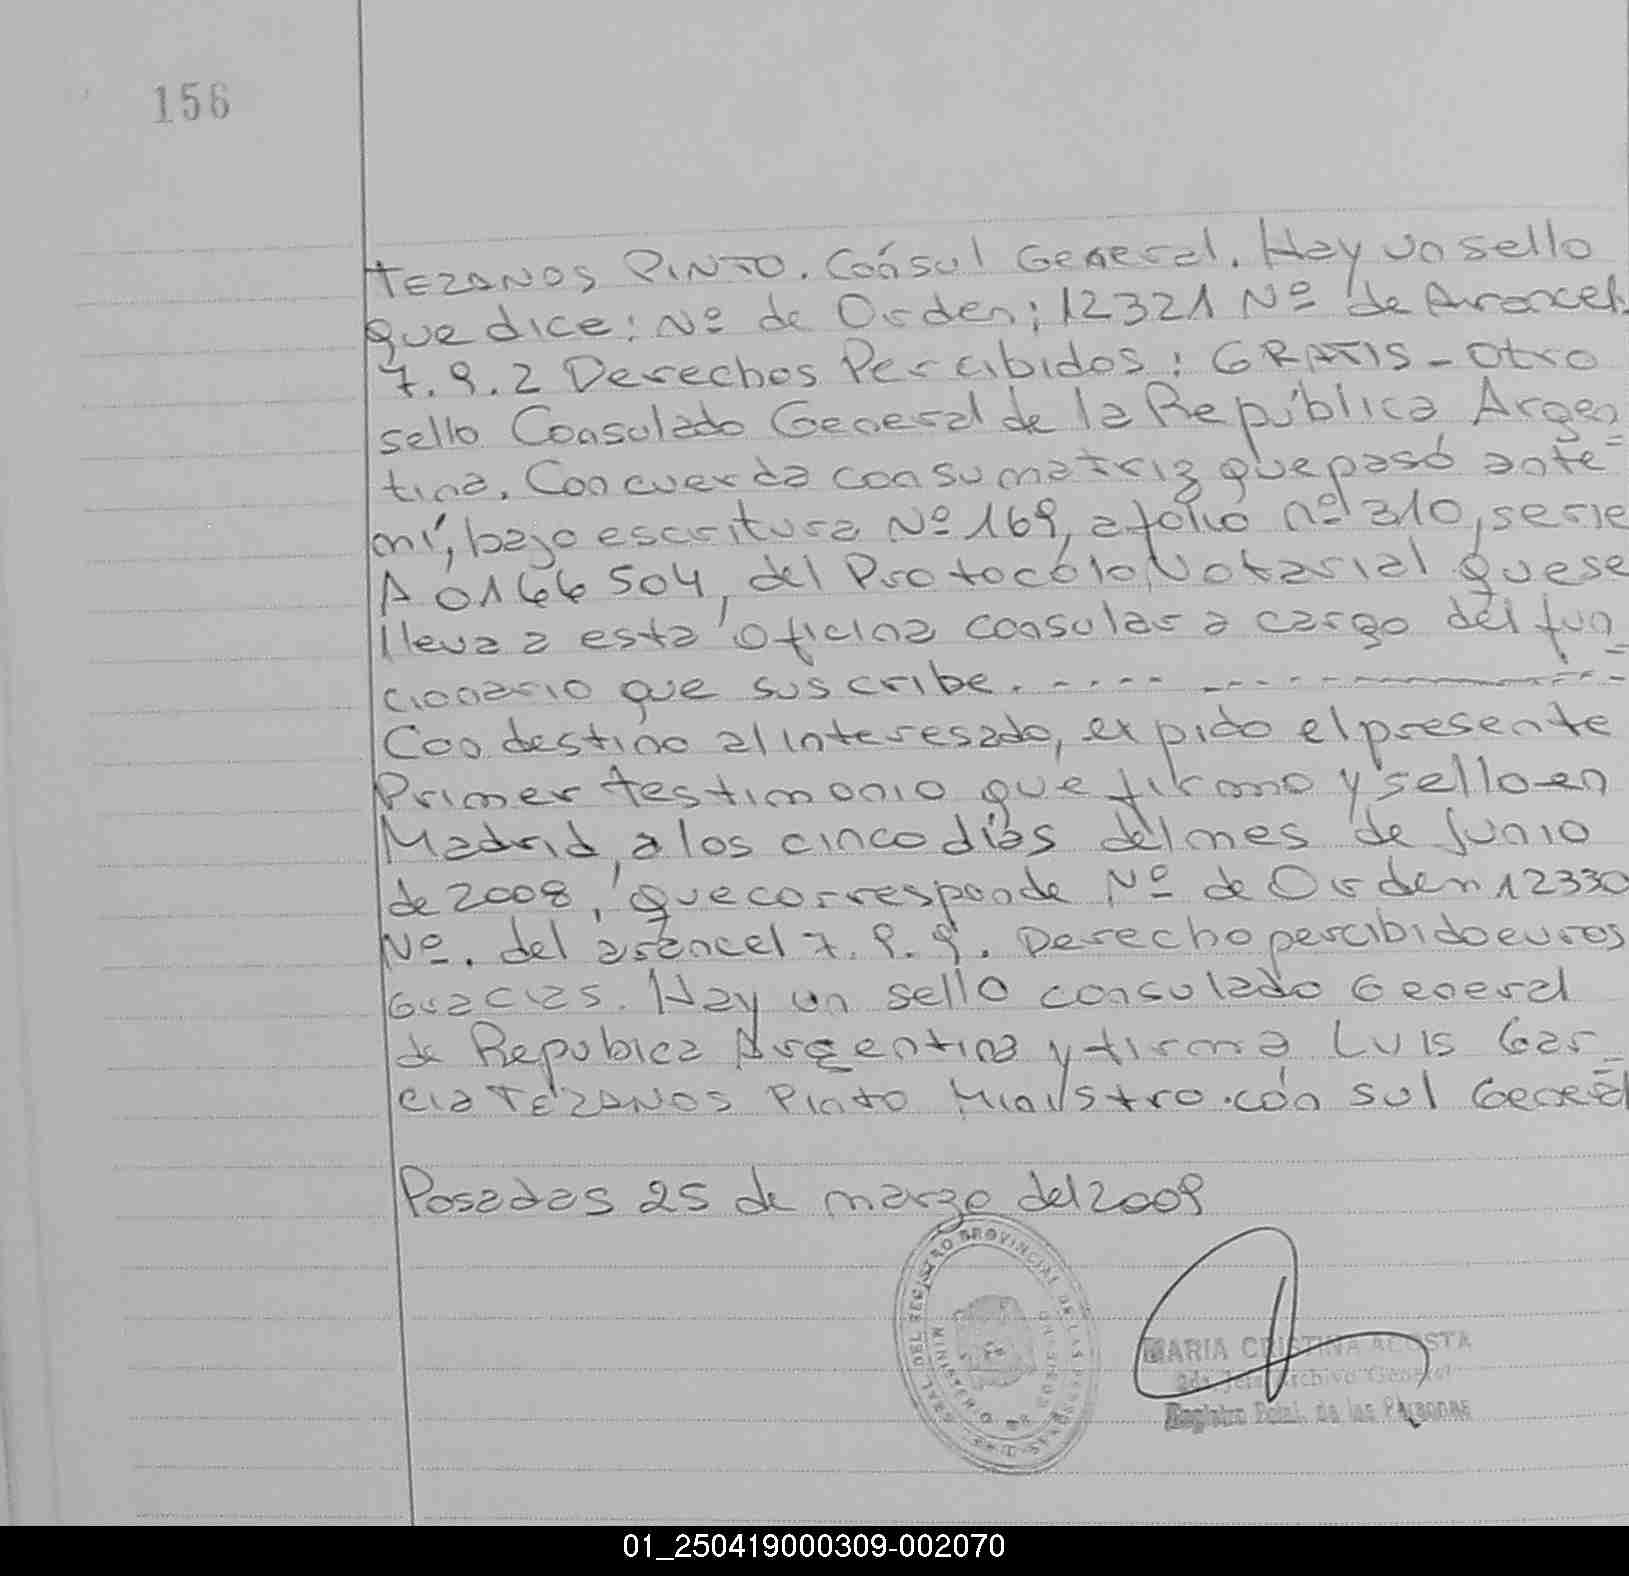 156
TEZANOS PINTO. Cónsul General. Hay un sello
que dice: Nº de Orden; 12321 Nº de Arancel.
7.9.2 Derechos Percibidos: GRATIS - Otro
sello Consulado General de la República Argen
tina. Concuerda con su matriz que pasó ante
mí, bajo escritura Nº 169, a folio nº 310, serie
A 0166504, del Protocólo Notarial que se
lleva a esta oficina consular a cargo del fun
cionario que suscribe. - - - - - - - - - - -
Con destino al interesado, expido el presente
Primer testimonio que firmo y sello en
Madrid, a los cinco días del mes de Junio
de 2008, que corresponde Nº de Orden 12330
Nº. del aráncel 7.9.9. Derecho percibido euros
Gracias. Hay un sello consulado General
de Repúbica Argentina y firma Luis Gar_
cia TEZANOS Pinto Ministro. cón sul General
Posadas 25 de marzo del 2009
GRAL. DEL REGISTRO PROVINCIAL DE LAS PERSONAS
MINISTERIO DE GOBIERNO
MARIA CRISTINA ACOSTA
2da. Jefa Archivo General
Registro Pcial. de las Personas
01_250419000309-002070